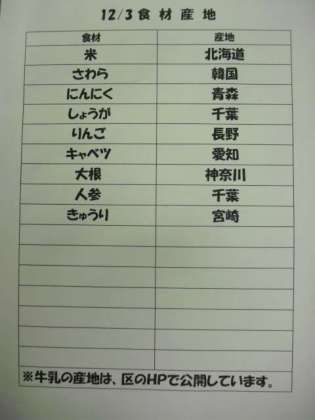 12/3食材産地
食材 産地
米 北海道
さわら 韓国
にんにく 青森
しょうが 千葉
りんご 長野
キャベツ 愛知
大根 神奈川
人参 千葉
きゅうり 宮崎
※牛乳の産地は、区のHPで公開しています。